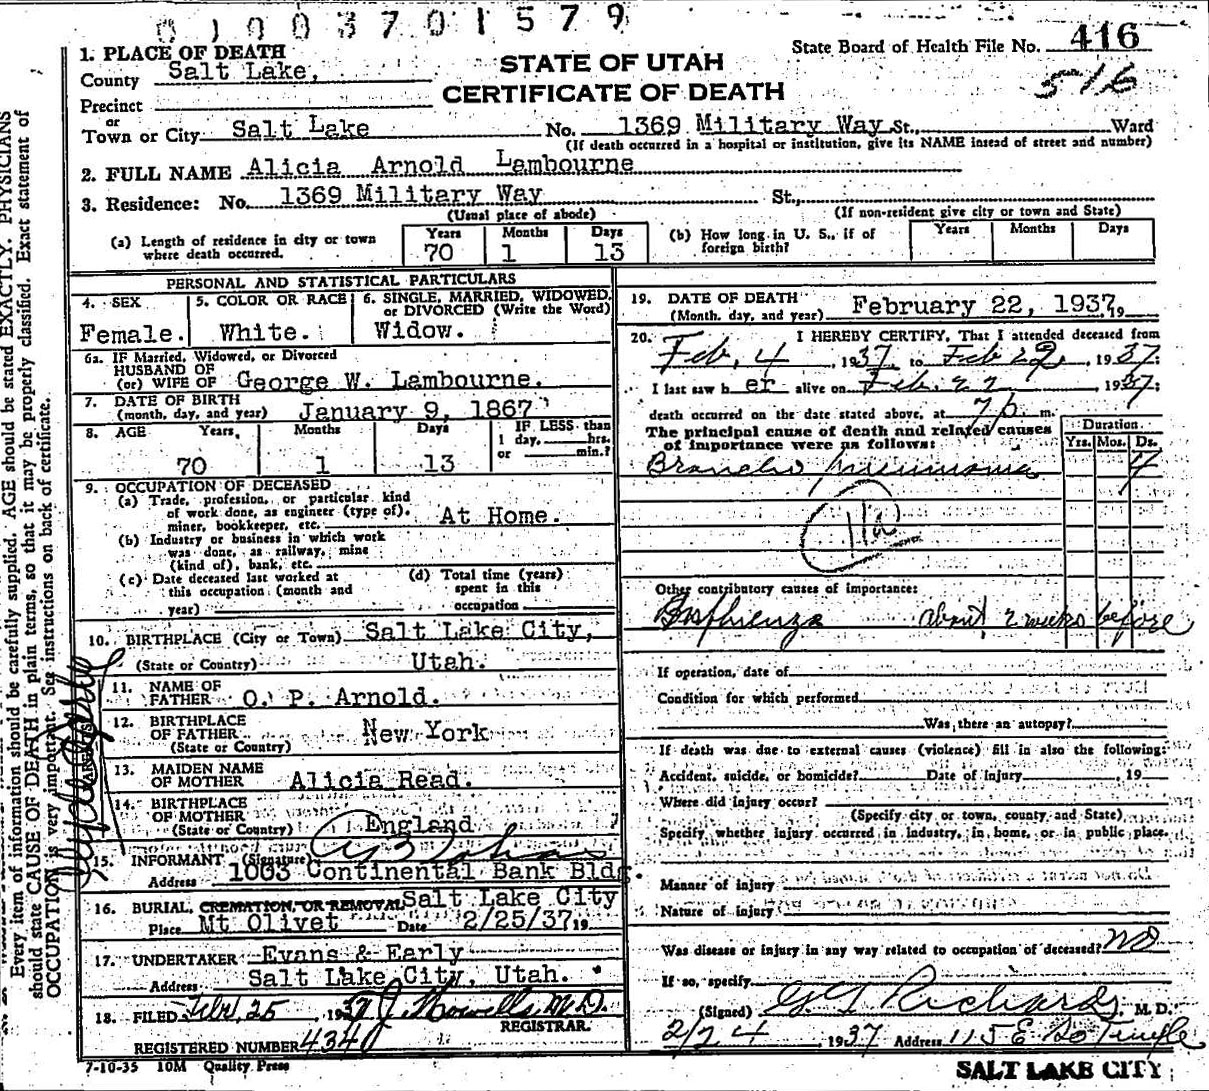 01003701579
State Board of Health File No. 416
516
STATE OF UTAH
CERTIFICATE OF DEATH
1. PLACE OF DEATH
County Salt Lake,
Precinct
or
Town or City Salt Lake No. 1369 Military Way St., Ward
(If death occurred in a hospital or institution, give its NAME insead of street and number)
2. FULL NAME Alicia Arnold Lambourne
3. Residence: No. 1369 Military Way St.,
(Usual place of abode) (If non-resident give city or town and State)
(a) Length of residence in city or town where death occurred. Years 70 Months 1 Days 13
(b) How long in U. S., if of foreign birth? Years Months Days
PERSONAL AND STATISTICAL PARTICULARS
4. SEX Female.
5. COLOR OR RACE White.
6. SINGLE, MARRIED, WIDOWED, or DIVORCED (Write the Word) Widow.
6a. IF Married, Widowed, or Divorced
HUSBAND OF
(or) WIFE OF George W. Lambourne.
7. DATE OF BIRTH
(month, day, and year) January 9, 1867
8. AGE Years, 70 Months 1 Days 13 IF LESS than 1 day, hrs. or min.?
9. OCCUPATION OF DECEASED
(a) Trade, profession, or particular kind of work done, as engineer (type of), miner, bookkeeper, etc. At Home.
(b) Industry or business in which work was done, as railway, mine (kind of), bank, etc.
(c) Date deceased last worked at this occupation (month and year)
(d) Total time (years) spent in this occupation
10. BIRTHPLACE (City or Town) Salt Lake City,
(State or Country) Utah.
11. NAME OF FATHER O. P. Arnold.
12. BIRTHPLACE OF FATHER New York
(State or Country)
13. MAIDEN NAME OF MOTHER Alicia Read.
14. BIRTHPLACE OF MOTHER
(State or Country) England
15. INFORMANT (Signature)
Address 1003 Continental Bank Bldg.
Salt Lake City
16. BURIAL, CREMATION, OR REMOVAL
Place Mt Olivet Date 2/25/37 19
17. UNDERTAKER Evans & Early
Address Salt Lake City, Utah.
18. FILED Feb, 25, 1937 J. Howells M.D.
REGISTRAR.
REGISTERED NUMBER 4340
7-10-35 10M Quality Press
19. DATE OF DEATH
(Month, day, and year) February 22, 1937, 19
20. I HEREBY CERTIFY, That I attended deceased from
Feb, 4, 1937, to Feb 22, 1937:
I last saw h er alive on Feb. 22, 1937;
death occurred on the date stated above, at 7 p. m.
The principal cause of death and related causes of importance were as follows:
Duration
Yrs. Mos. Ds.
Broncho pneumonia 4
11a
Other contributory causes of importance:
Influenza about 2 weeks before
If operation, date of
Condition for which performed
Was there an autopsy?
If death was due to external causes (violence) fill in also the following:
Accident, suicide, or homicide? Date of injury , 19
Where did injury occur?
(Specify city or town, county and State)
Specify whether injury occurred in industry, in home, or in public place.
Manner of injury
Nature of injury
Was disease or injury in any way related to occupation of deceased? no
If so, specify
(Signed) G.G Richards, M. D.
2/24, 1937 Address 115 E So Temple
SALT LAKE CITY
Every item of information should be carefully supplied. AGE should be stated EXACTLY. PHYSICIANS
should state CAUSE OF DEATH in plain terms, so that it may be properly classified. Exact statement of
OCCUPATION is very important. See instructions on back of certificate.